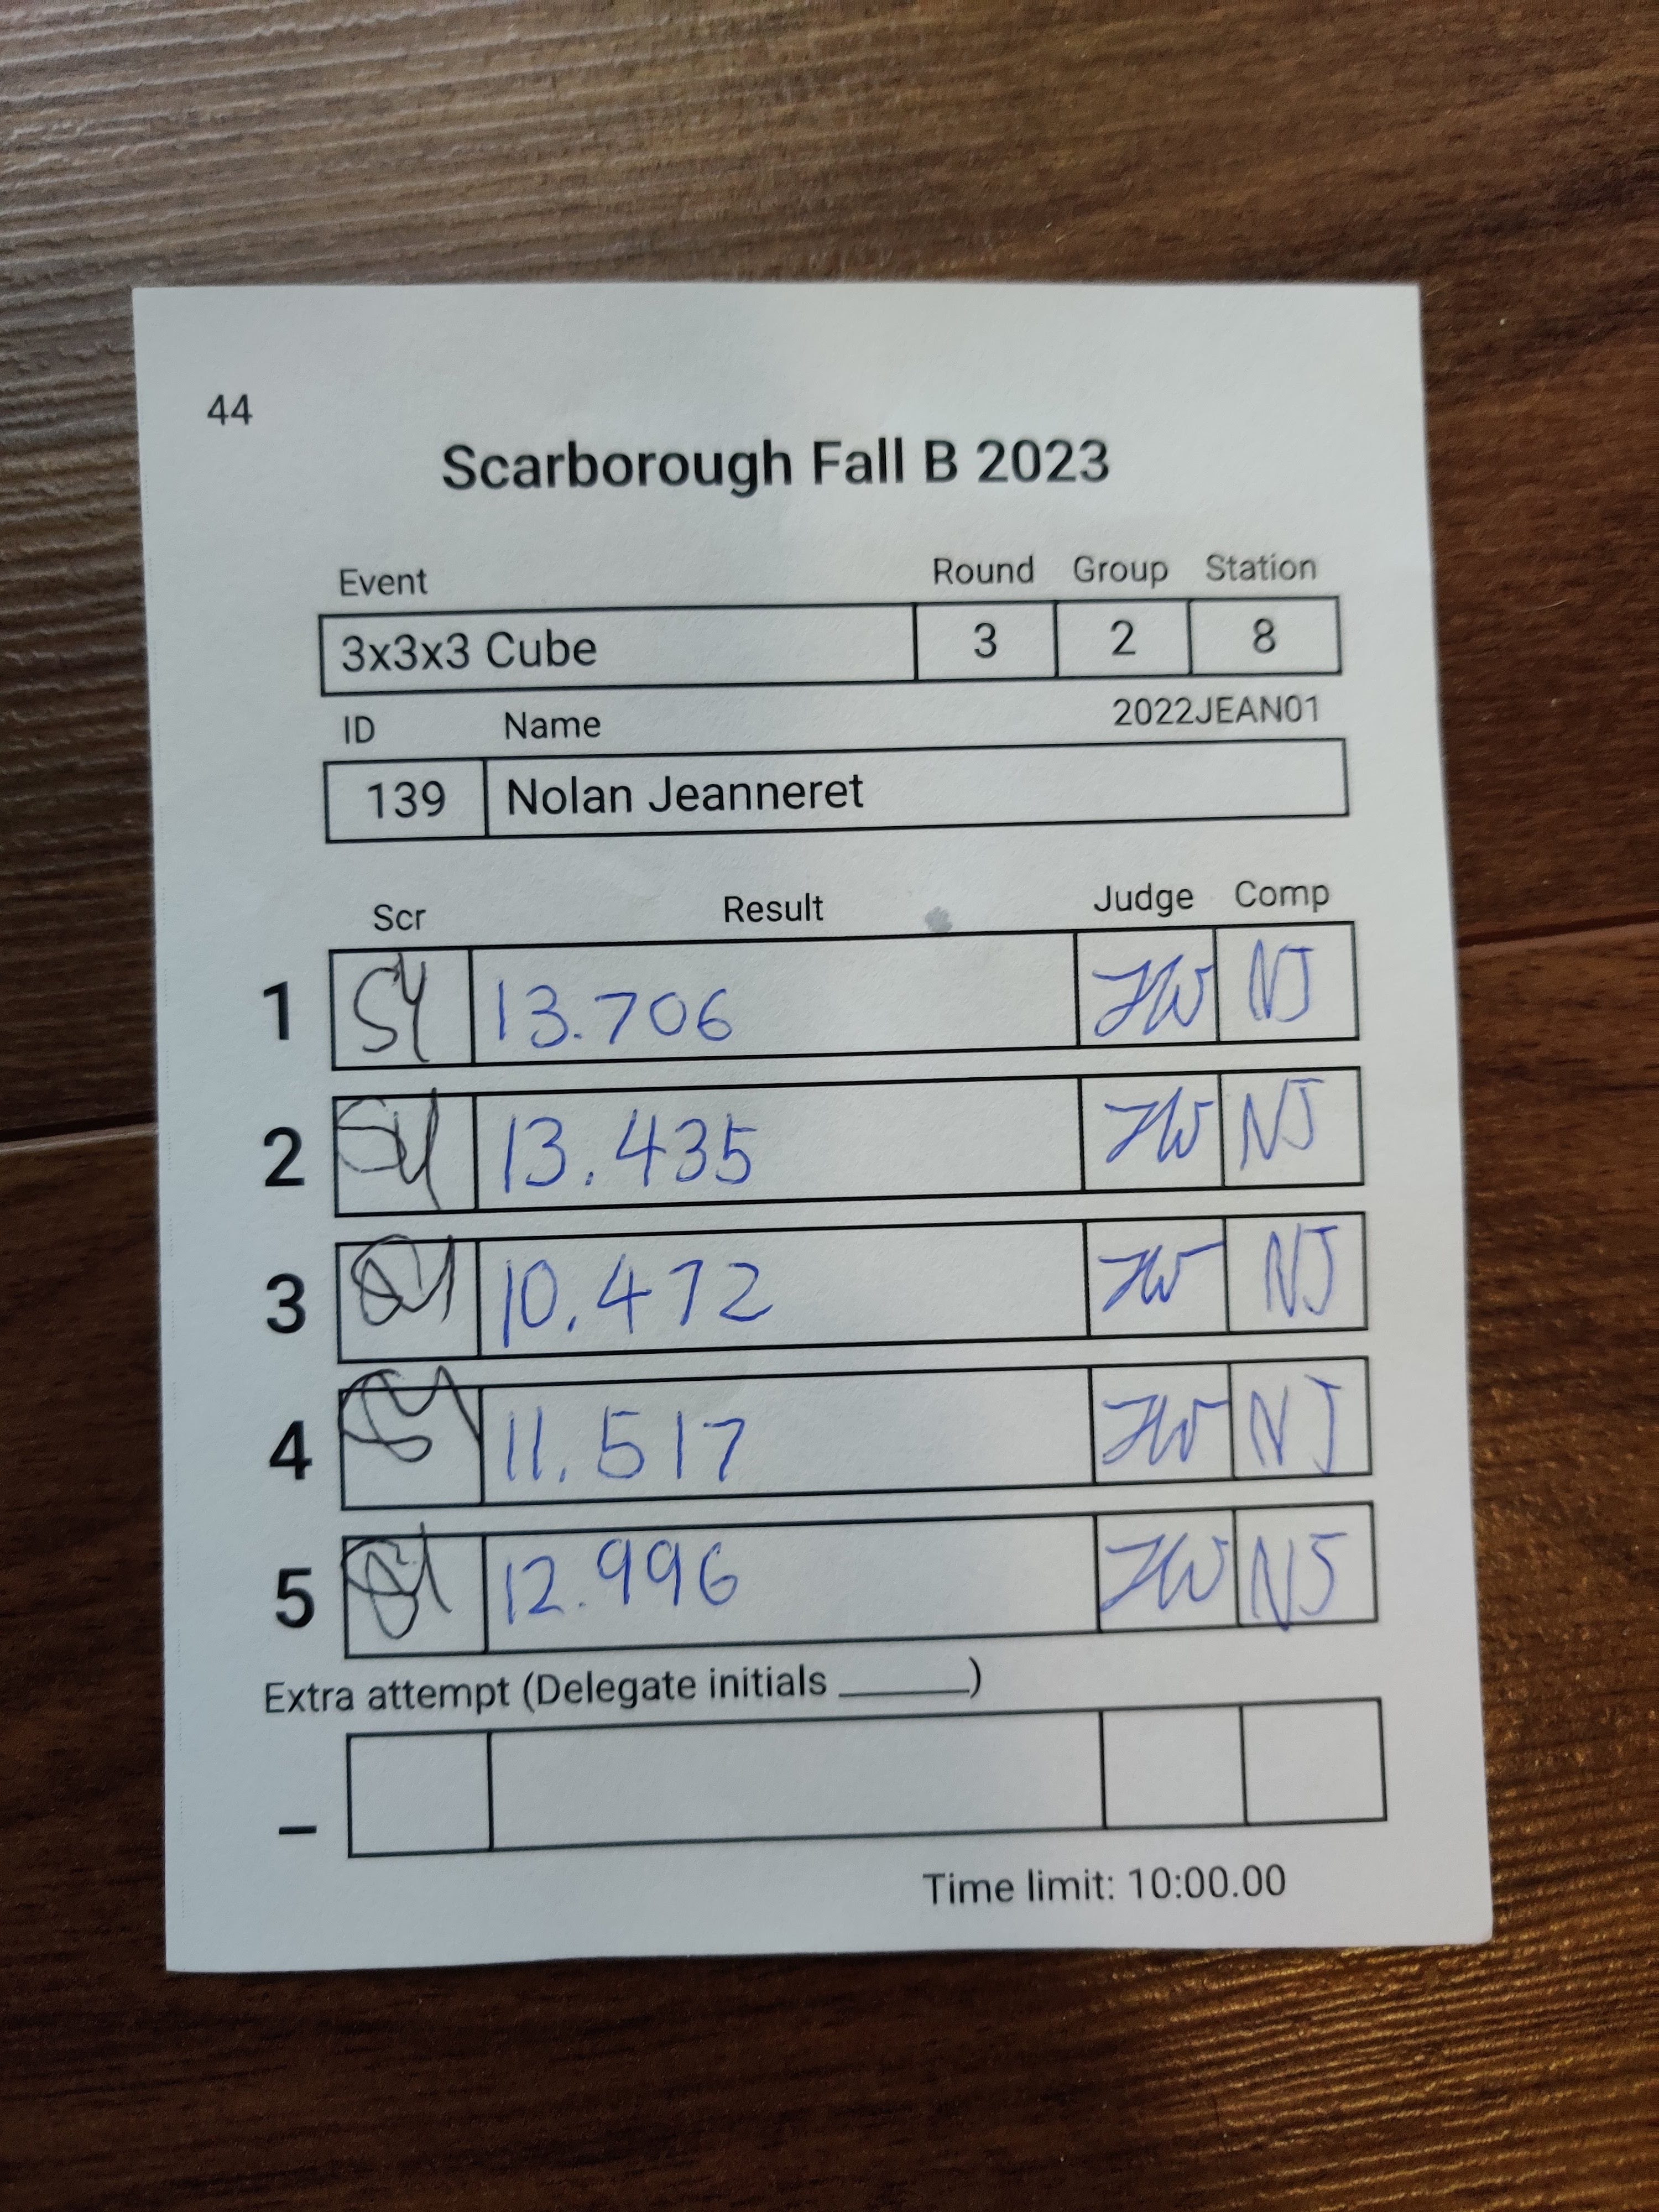 44
Scarborough Fall B 2023
Event Round Group Station
3x3x3 Cube 3 2 8
ID Name 2022JEAN01
139 Nolan Jeanneret
Scr Result Judge Comp
1 SY 13.706 JW NJ
2 SY 13.435 JW NJ
3 SY 10.472 JW NJ
4 SY 11.517 JW NJ
5 SY 12.996 JW NJ
Extra attempt (Delegate initials ______)
–
Time limit: 10:00.00